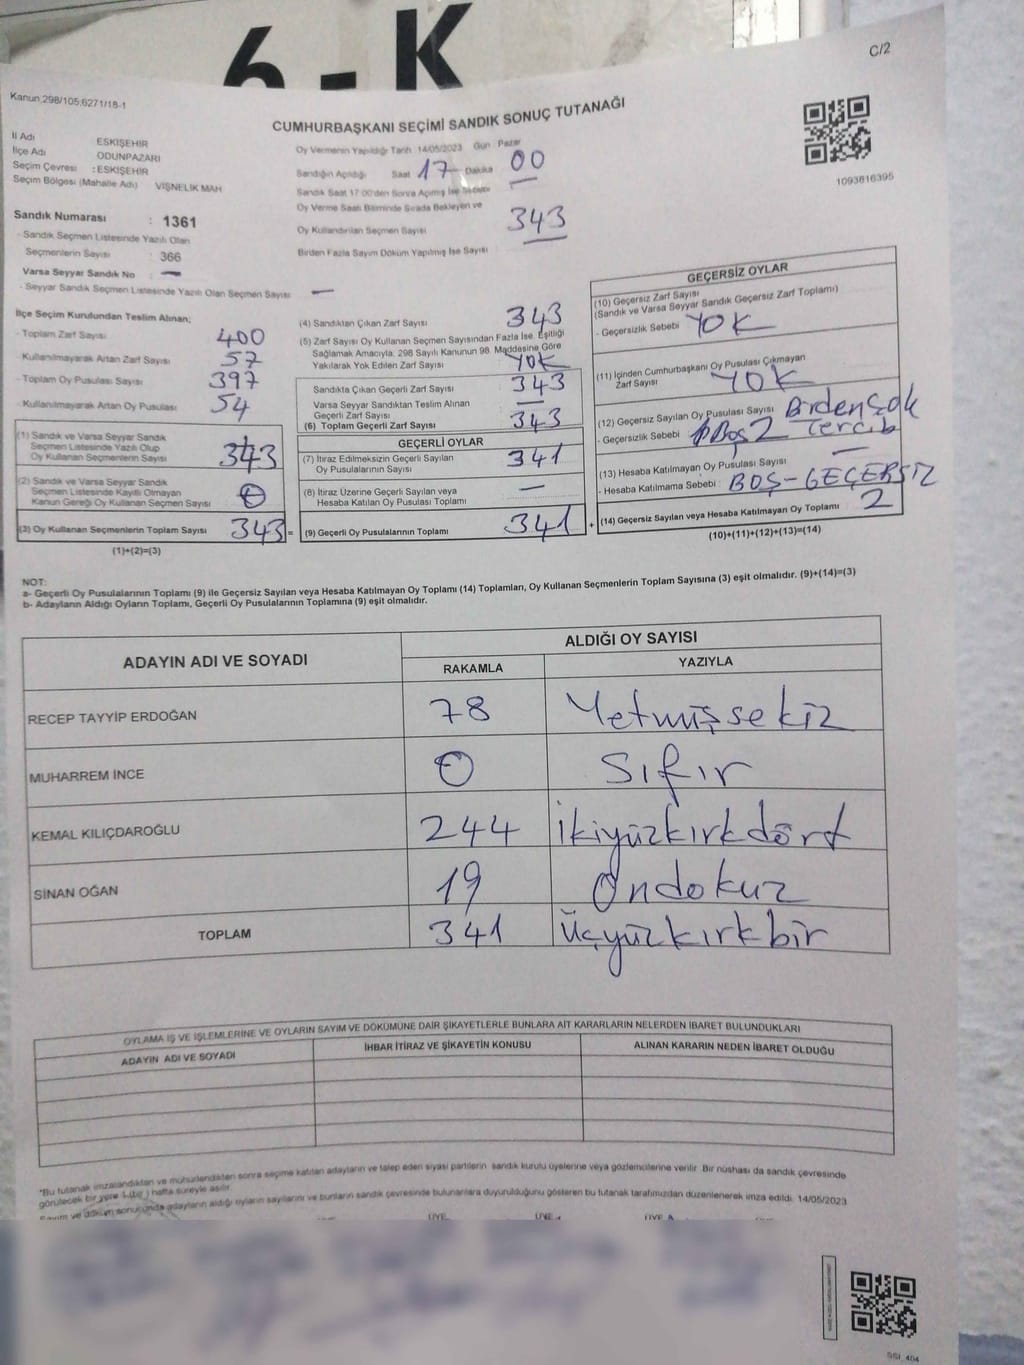 6-K
C/2
Kanun 298/105;6271/18-1
CUMHURBAŞKANI SEÇİMİ SANDIK SONUÇ TUTANAĞI
1093616395
İl Adı ESKİŞEHİR
İlçe Adı ODUNPAZARI
Seçim Çevresi : ESKİŞEHİR
Seçim Bölgesi (Mahalle Adı) VİŞNELİK MAH
Sandık Numarası : 1361
- Sandık Seçmen Listesinde Yazılı Olan
Seçmenlerin Sayısı : 366
Varsa Seyyar Sandık No —
- Seyyar Sandık Seçmen Listesinde Yazılı Olan Seçmen Sayısı : —
Oy Vermenin Yapıldığı Tarih :14/05/2023 Gün Pazar
Sandığın Açıldığı Saat 17 Dakika 00
Sandık Saat 17:00'den Sonra Açılmış İse Sebebi —
Oy Verme Saati Bitiminde Sırada Bekleyen ve
Oy Kullandırılan Seçmen Sayısı 343
Birden Fazla Sayım Döküm Yapılmış İse Sayısı
İlçe Seçim Kurulundan Teslim Alınan;
- Toplam Zarf Sayısı 400
- Kullanılmayarak Artan Zarf Sayısı 57
- Toplam Oy Pusulası Sayısı 397
- Kullanılmayarak Artan Oy Pusulası 54
(1) Sandık ve Varsa Seyyar Sandık
Seçmen Listesinde Yazılı Olup
Oy Kullanan Seçmenlerin Sayısı : 343
(2) Sandık ve Varsa Seyyar Sandık
Seçmen Listesinde Kayıtlı Olmayan
Kanun Gereği Oy Kullanan Seçmen Sayısı : 0
(3) Oy Kullanan Seçmenlerin Toplam Sayısı 343 =
(1)+(2)=(3)
(4) Sandıktan Çıkan Zarf Sayısı 343
(5) Zarf Sayısı Oy Kullanan Seçmen Sayısından Fazla İse, Eşitliği
Sağlamak Amacıyla, 298 Sayılı Kanunun 98. Maddesine Göre
Yakılarak Yok Edilen Zarf Sayısı YOK
Sandıkta Çıkan Geçerli Zarf Sayısı 343
Varsa Seyyar Sandıktan Teslim Alınan
Geçerli Zarf Sayısı —
(6) Toplam Geçerli Zarf Sayısı : 343
GEÇERLİ OYLAR
(7) İtiraz Edilmeksizin Geçerli Sayılan
Oy Pusulalarının Sayısı 341
(8) İtiraz Üzerine Geçerli Sayılan veya
Hesaba Katılan Oy Pusulası Toplamı —
(9) Geçerli Oy Pusulalarının Toplamı 341 +
GEÇERSİZ OYLAR
(10) Geçersiz Zarf Sayısı
(Sandık ve Varsa Seyyar Sandık Geçersiz Zarf Toplamı)
- Geçersizlik Sebebi YOK
(11) İçinden Cumhurbaşkanı Oy Pusulası Çıkmayan
Zarf Sayısı YOK
(12) Geçersiz Sayılan Oy Pusulası Sayısı Birden Çok
- Geçersizlik Sebebi : 1 Boş 2 Tercih
(13) Hesaba Katılmayan Oy Pusulası Sayısı —
- Hesaba Katılmama Sebebi : BOŞ-GEÇERSİZ
(14) Geçersiz Sayılan veya Hesaba Katılmayan Oy Toplamı 2
(10)+(11)+(12)+(13)=(14)
NOT:
a- Geçerli Oy Pusulalarının Toplamı (9) ile Geçersiz Sayılan veya Hesaba Katılmayan Oy Toplamı (14) Toplamları, Oy Kullanan Seçmenlerin Toplam Sayısına (3) eşit olmalıdır. (9)+(14)=(3)
b- Adayların Aldığı Oyların Toplamı, Geçerli Oy Pusulalarının Toplamına (9) eşit olmalıdır.
ADAYIN ADI VE SOYADI ALDIĞI OY SAYISI
RAKAMLA YAZIYLA
RECEP TAYYİP ERDOĞAN 78 Yetmişsekiz
MUHARREM İNCE 0 Sıfır
KEMAL KILIÇDAROĞLU 244 İkiyüzkırkdört
SİNAN OĞAN 19 Ondokuz
TOPLAM 341 Üçyüzkırkbir
OYLAMA İŞ VE İŞLEMLERİNE VE OYLARIN SAYIM VE DÖKÜMÜNE DAİR ŞİKAYETLERLE BUNLARA AİT KARARLARIN NELERDEN İBARET BULUNDUKLARI
ADAYIN ADI VE SOYADI İHBAR İTİRAZ VE ŞİKAYETİN KONUSU ALINAN KARARIN NEDEN İBARET OLDUĞU
*Bu tutanak imzalandıktan ve mühürlendikten sonra seçime katılan adayların ve talep eden siyasi partilerin sandık kurulu üyelerine veya gözlemcilerine verilir. Bir nüshası da sandık çevresinde
görülecek bir yere 1 (bir) hafta süreyle asılır.
Sayım ve döküm sonucunda adayların aldığı oyların sayılarını ve bunların sandık çevresinde bulunanlara duyurulduğunu gösteren bu tutanak tarafımızdan düzenlenerek imza edildi. 14/05/2023
ÜYE ÜYE ÜYE